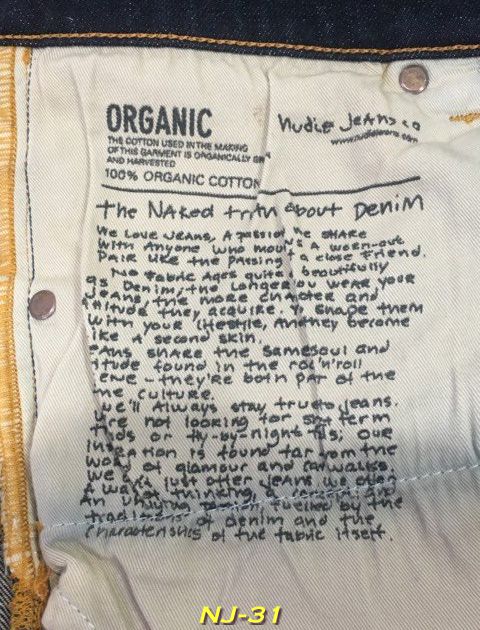 ORGANIC
THE COTTON USED IN THE MAKING
OF THIS GARMENT IS ORGANICALLY GR
AND HARVESTED
100% ORGANIC COTTON
nudie Jeans co
www.nudiejeans.com
the NAked truth about Denim
WE LOVE JEANS, A passion we SHARE
With Anyone who mourns A worn-out
PAIR LIKE the PASSING a close friend.
No FABRIC AGES quite beautifully
as Denim. the Longer you wear your
JEANS, the more character and
titude they acquire. shape them
With your lifestyle, And they become
like A second skin.
EANS SHARE the same soul and
titude found in the rock'n'roll
ENE - they're both PART of the
me culture.
We'll Always stay true to Jeans.
're not looking for short term
or fly-by-night our
inspiration is found far from the
world of glamour and catwalks.
just offer JEANS we
thinking
fuelled by the
traditions of denim and the
characteristics of the fabric itself.
NJ-31